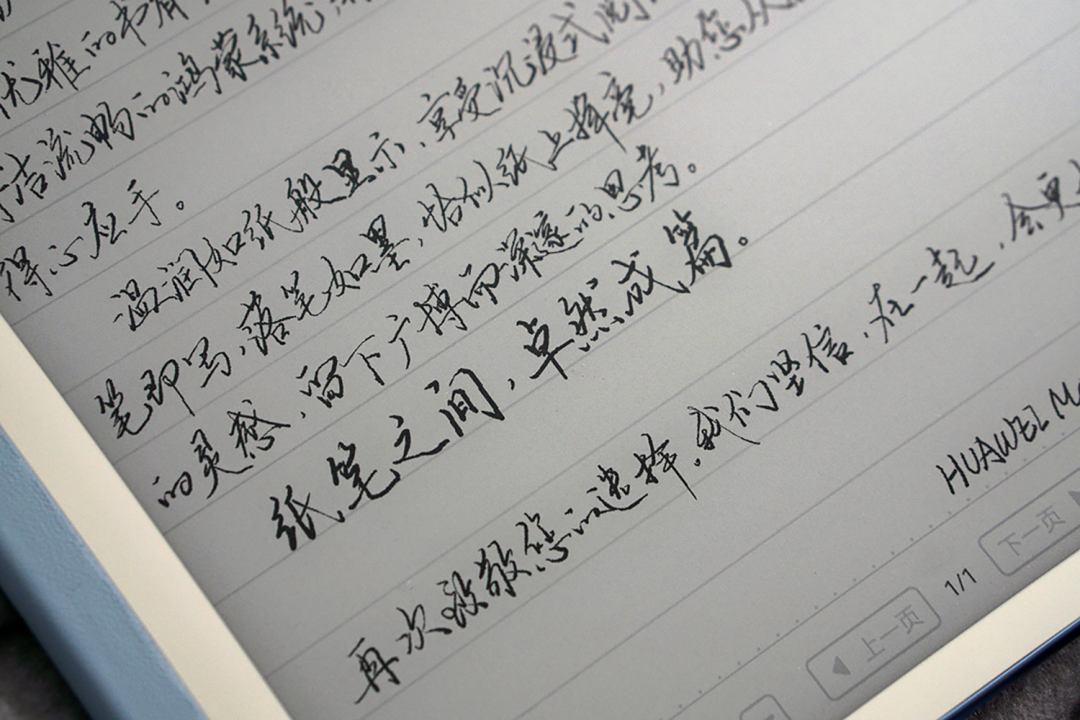 优雅的书
洁流畅的鸿蒙系统
得心应手。
温润如纸般显示,享受沉浸式阅
笔即写,落笔如墨,恰似纸上挥毫,助您从
的灵感,留下广博而深邃的思考。
纸笔之间,卓然成篇。
再次致敬您的选择。我们坚信,在一起,会更
HUAWEI M
上一页 1/1 下一页